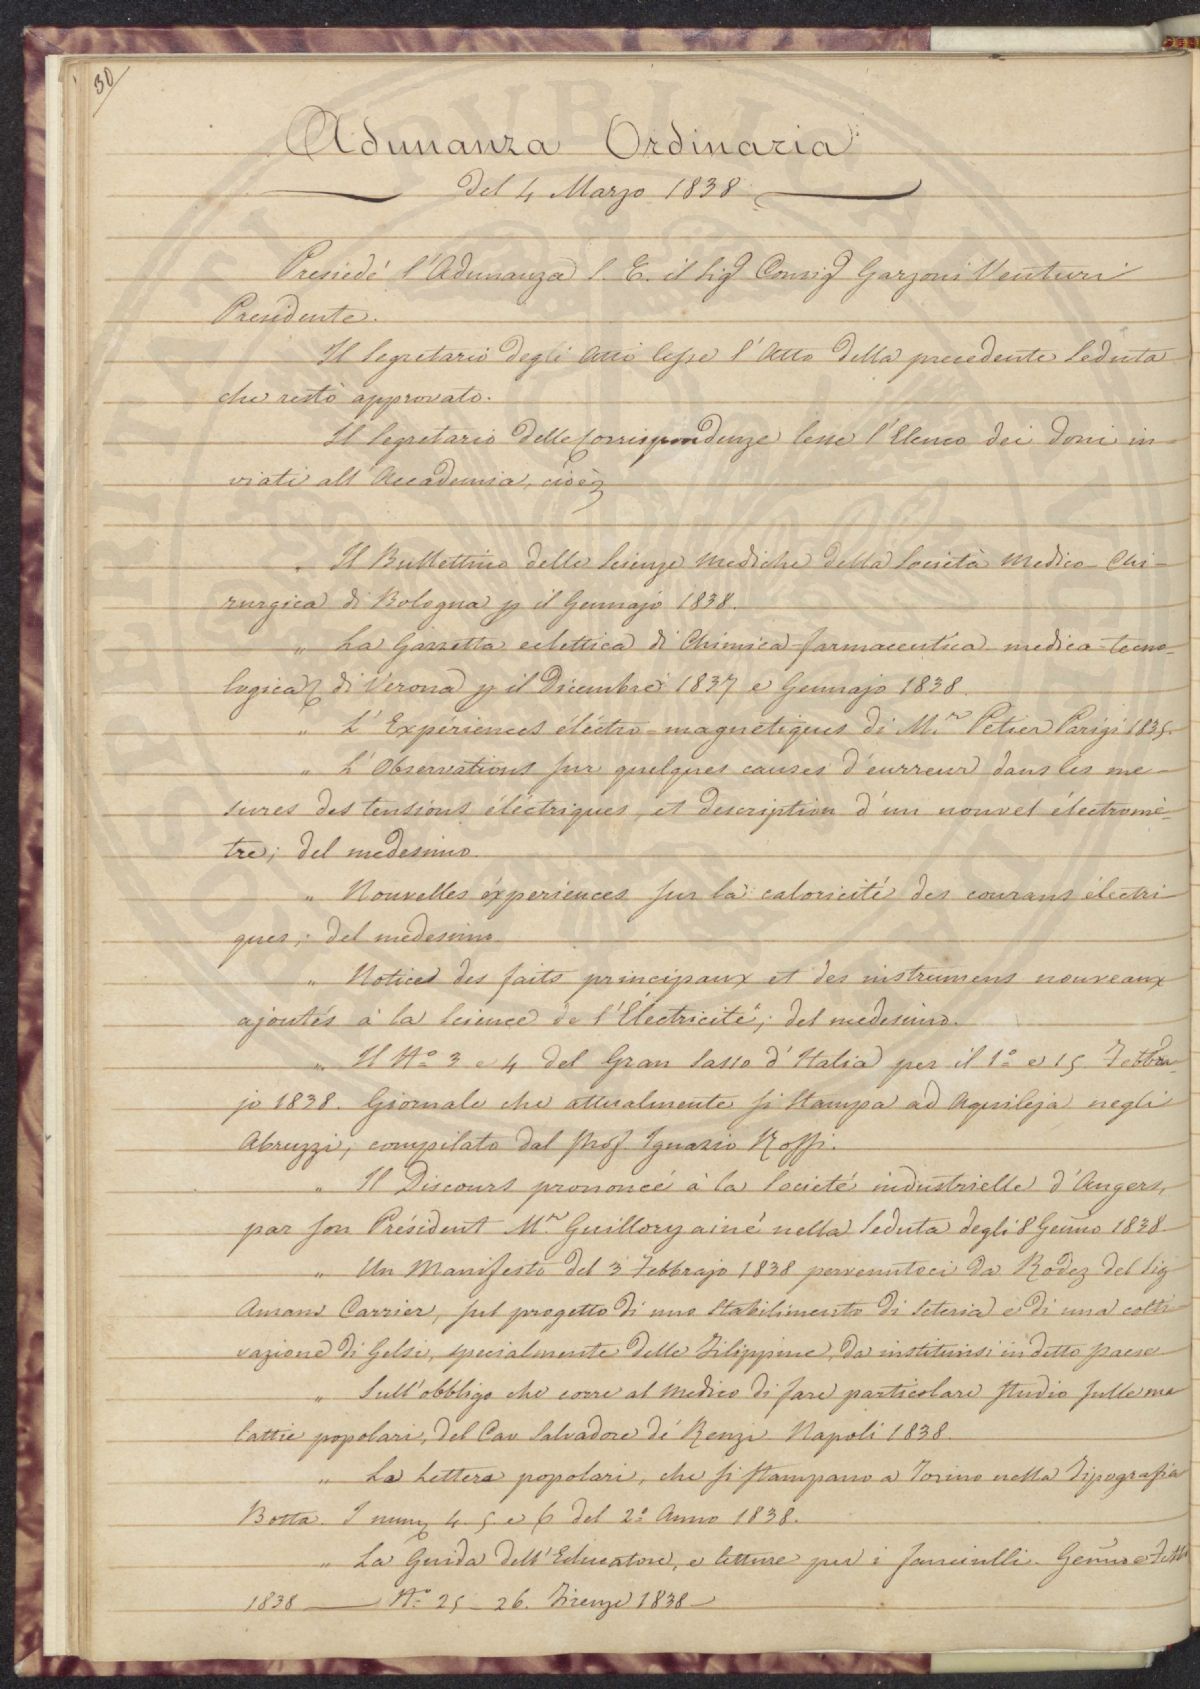 30
Adunanza Ordinaria
del 4 Marzo 1838
Presiedé l'Adunanza S. E. il Sig Consig Garzoni Venturi
Presidente.
Il Segretario degli Atti lesse l'Atto della precedente Seduta
che restò approvato.
Il Segretario delle Corrispondenze lesse l'Elenco dei doni in-
viati all'Accademia, cioè
" Il Bullettino delle Scienze Mediche della Società Medico-Chi-
rurgica di Bologna p il Gennajo 1838.
" La Gazzetta eclettica di Chimica farmaceutica medica-tecno-
logica di Verona p il Dicembre 1837 e Gennajo 1838.
" L'Expériences éléctro-magnétiques di M.r Peltier Parigi 1835.
" L'Observations sur quelques causes d'eurreur dans les me-
sures des tensions éléctriques, et description d'un nouvel électromè-
tre; del medesimo.
" Nouvelles éxperiences sur la caloricité des courans électri
ques; del medesimo
" Notices des faits principaux et des instrumens nouveaux
ajoutés à la Science de l'Électricité; del medesimo.
" Il N.o 3 e 4 del Gran Sasso d'Italia per il 1.o e 15 Febbra-
jo 1838. Giornale che attualmente si stampa ad Aquileja negli
Abruzzi, compilato dal Prof. Ignazio Rossi.
" Il Discours prononcé à la Societé industrielle d'Angers,
par son Président M.r Guillory ainé nella Seduta degli 8 Genno 1838
" Un Manifesto del 3 Febbrajo 1838 pervenutoci da Rodez del Sig
Amans Carrier, sul progetto di uno Stabilimento di Seteria e di una colti
vazione di Gelsi, specialmente delle Filippine, da instituirsi in detto paese
" Sull'obbligo che corre al Medico di fare particolare studio sulle ma
lattie popolari, del Cav Salvadore de' Renzi. Napoli 1838.
" La Letture popolari, che si stampano a Torino nella Tipografia
Botta. I num 4. 5. e 6 del 2.o Anno 1838.
" La Guida dell'Educatore, e letture per i fanciulli. Gennro e Febb
1838 — N.o 25 - 26. Firenze 1838 —